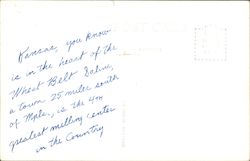 Kansas, you know
is in the heart of the
Wheat Belt Salina,
a town 25 miles south
of Mpls., is the 4th
greatest milling center
in the Country
POST CARD